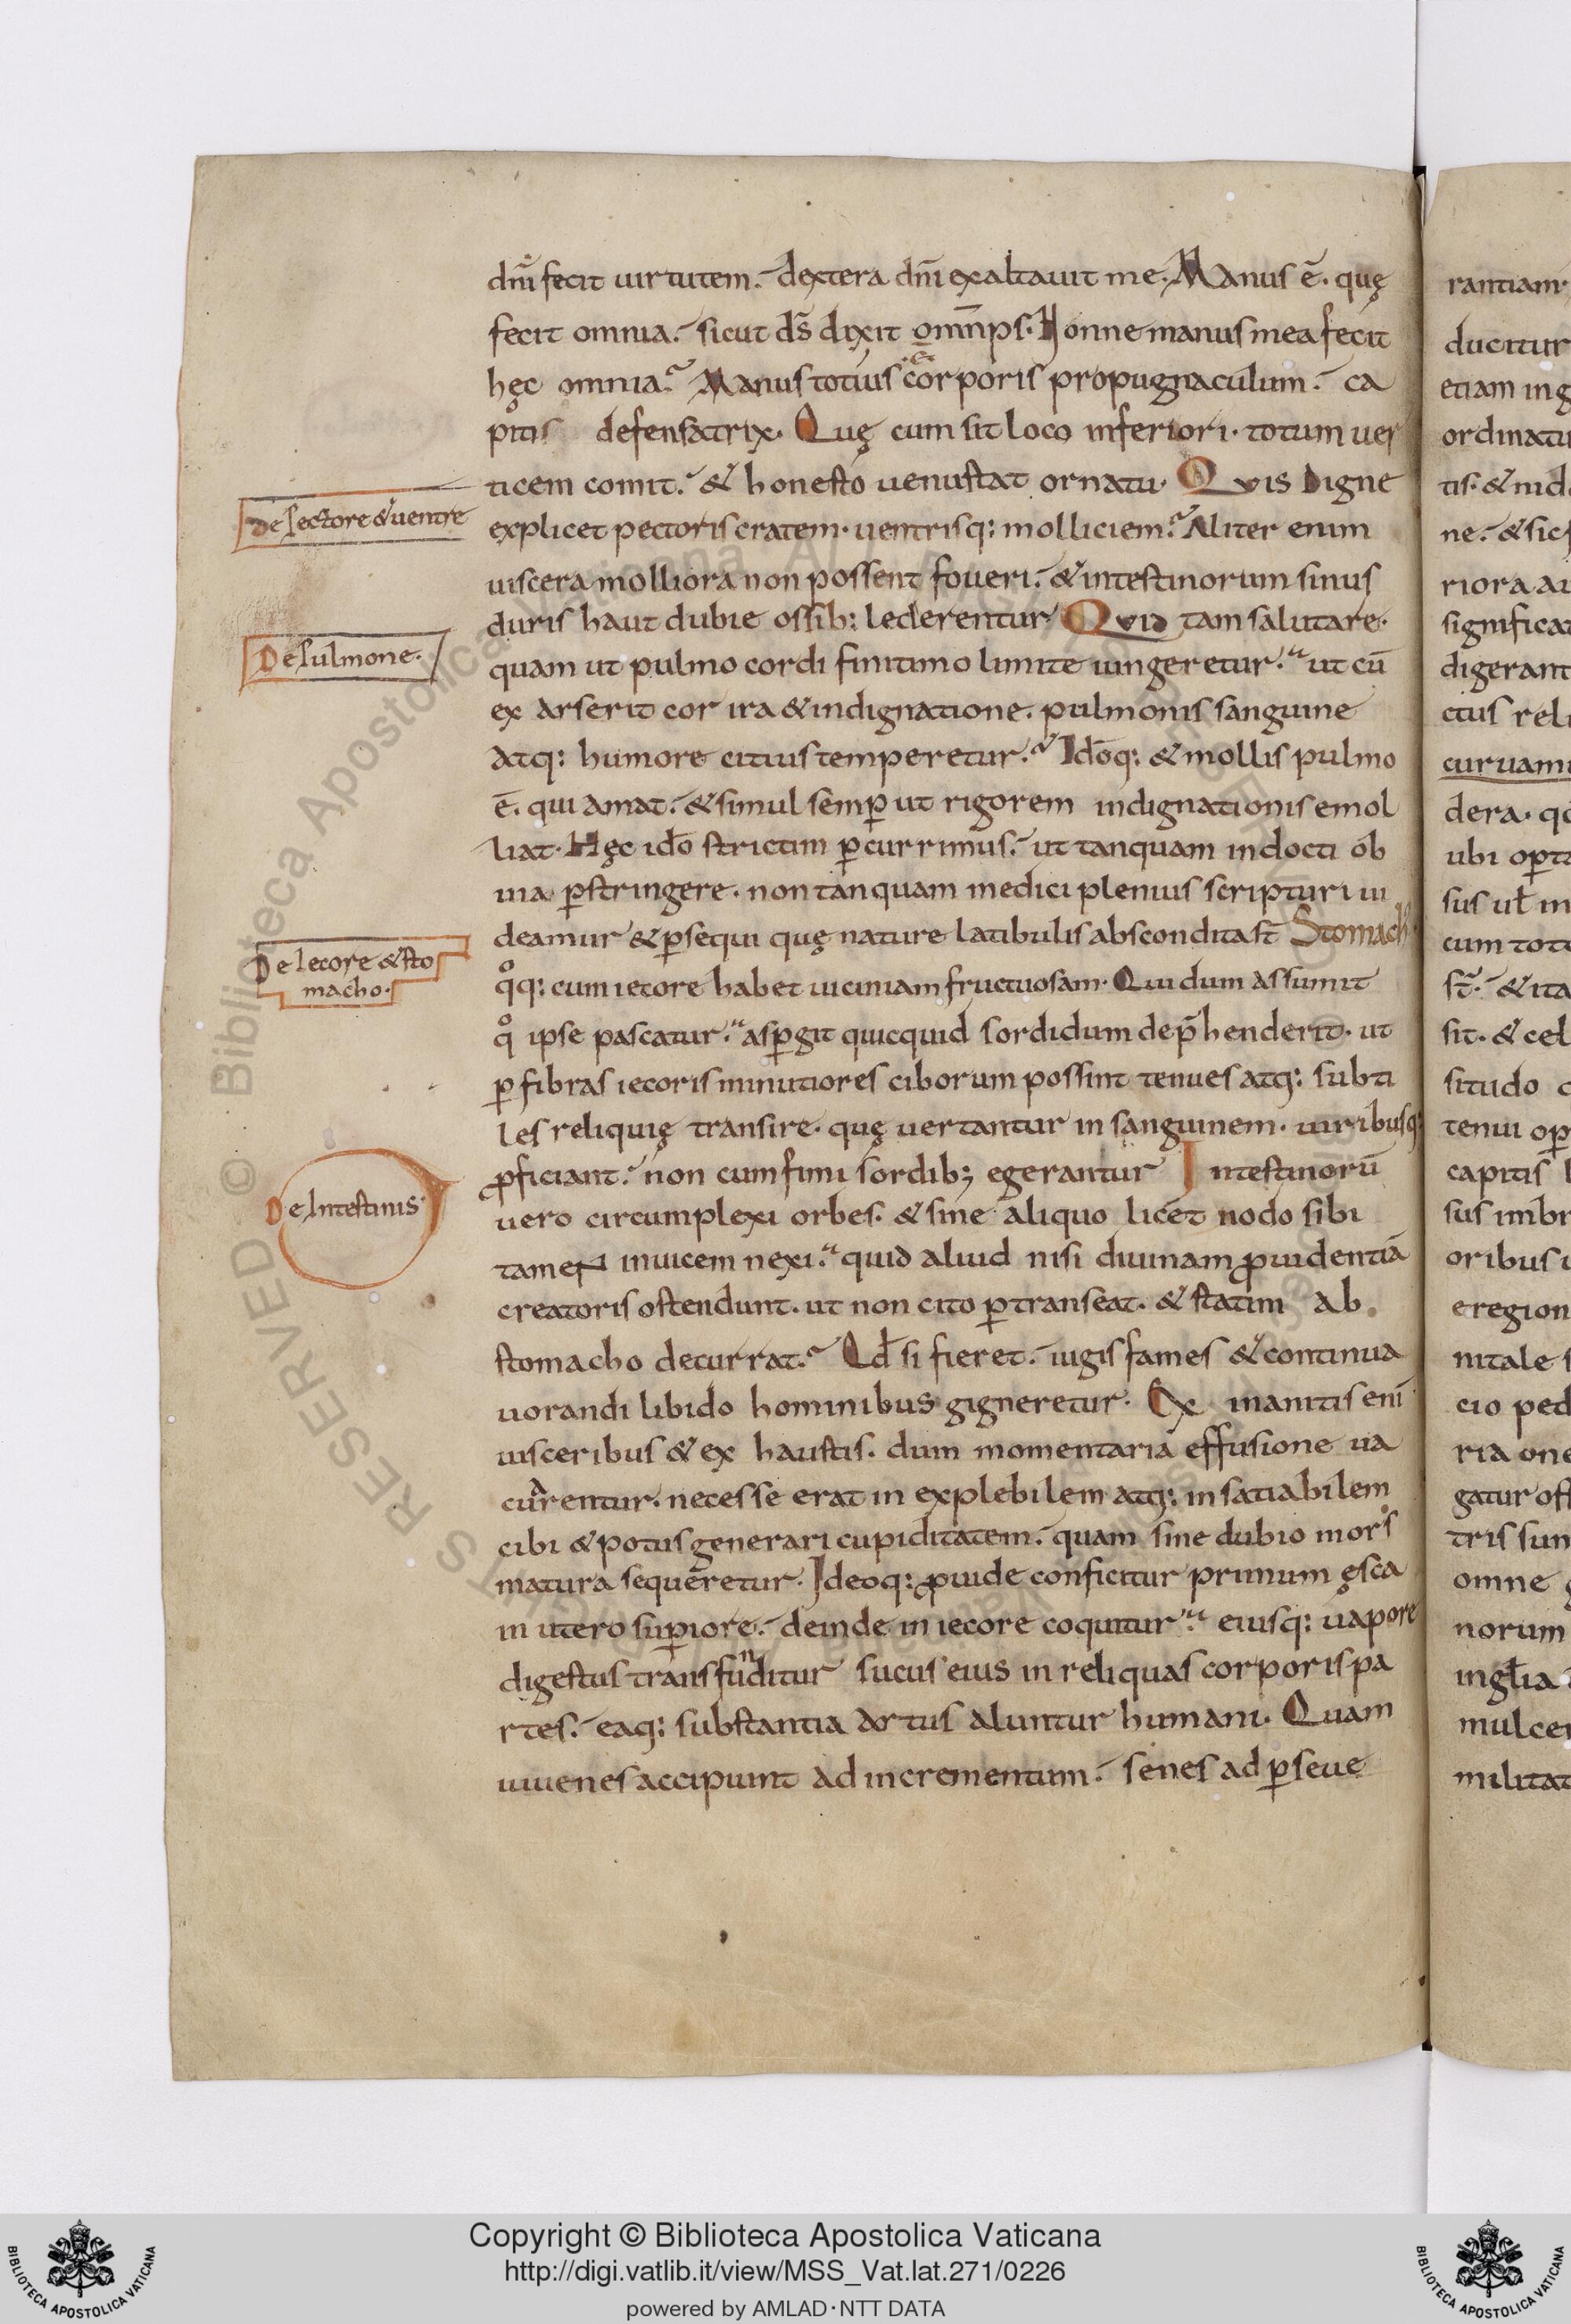 dñi fecit uirtutem. dextera dñi exaltauit me. Manus ē. quę
fecit omnia. sicut d̄s dixit omñps. Nonne manus mea fecit
hęc omnia? Manus totius ·ē· corporis propugnaculum. ca
pitis defensatrix. Quę cum sit loco inferiori. totum uer
ticem comit. & honesto uenustat ornatu. Quis digne
De pectore & uentre
explicet pectoris cratem. uentrisq: molliciem? Aliter enim
uiscera molliora non possent foueri. & intestinorum sinus
duris haut dubie ossib: lederentur Quid tam salutare.
De Pulmone.
quam ut pulmo cordi finitimo limite iungeretur. ut cū
ex arserit cor ira & indignatione. pulmonis sanguine
atq: humore citius temperetur? Idōq: & mollis pulmo
ē. qui amat. & simul semp̄ ut rigorem indignationis emol
liat. Hęc idō strictim p̄currimus. ut tanquam indocti ob
uia p̄stringere. non tanquam medici plenius scripturi ui
deamur & p̄sequi quę nature latibulis abscondita st̄ Stomach'
De Iecore & sto
macho.
qͦq: cum ietore habet uiciniam fructuosam. Qui dum assumit
qͦ ipse pascatur. asp̄git quicquid sordidum dep̄henderit. ut
p̄ fibras iecoris minutiores ciborum possint tenues atq: subti
les reliquię transire. quę uertantur in sanguinem. uiribusq:
ꝓficiant. non cum fimi sordib; egerantur Intestinorū
De Intestinis
uero circumplexi orbes. & sine aliquo licet nodo sibi
tamen inuicem nexi. quid aliud nisi diuinam ꝓuidentiā
creatoris ostendunt. ut non cito p̄transeat. & statim ab
stomacho decurrat? Qd̄ si fieret. iugis fames & continua
uorandi libido hominibus gigneretur. Ex inanitis enī
uisceribus & ex haustis. dum momentaria effusione ua
cuarentur. necesse erat in explebilem atq: in satiabilem
cibi & potus generari cupiditatem. quam sine dubio mors
matura sequeretur. Ideoq: ꝓuide conficitur primum ęsca
in utero sup̄iore. deinde in iecore coquitur. eiusq: uapore
digestus transfunditur sucus eius in reliquas corporis pa
rtes. eaq: substantia artus aluntur humani. Quam
iuuenes accipiunt ad incrementum. senes ad p̄seue
rantiam
ducitur
etiam in g
ordinatu
tis. & nid
ne. & sic
riora au
significat
digerant
ctus reli
curuami
dera. qd
ubi op̄ta
sus ul̄ in
cum toto
st̄. & ita
sit. & cel
situdo c
tenui op̄
capitis
sus imbr
oribus u
eregion
nitale s
cio ped
ria one
gatur of
tris sun
omne
norum
ingl̄ia
mulcer
militat
RIGHTS RESERVED © Biblioteca Apostolica Vaticana
Copyright © Biblioteca Apostolica Vaticana
http://digi.vatlib.it/view/MSS_Vat.lat.271/0226
powered by AMLAD·NTT DATA
BIBLIOTECA APOSTOLICA VATICANA
BIBLIOTECA APOSTOLICA VATICANA